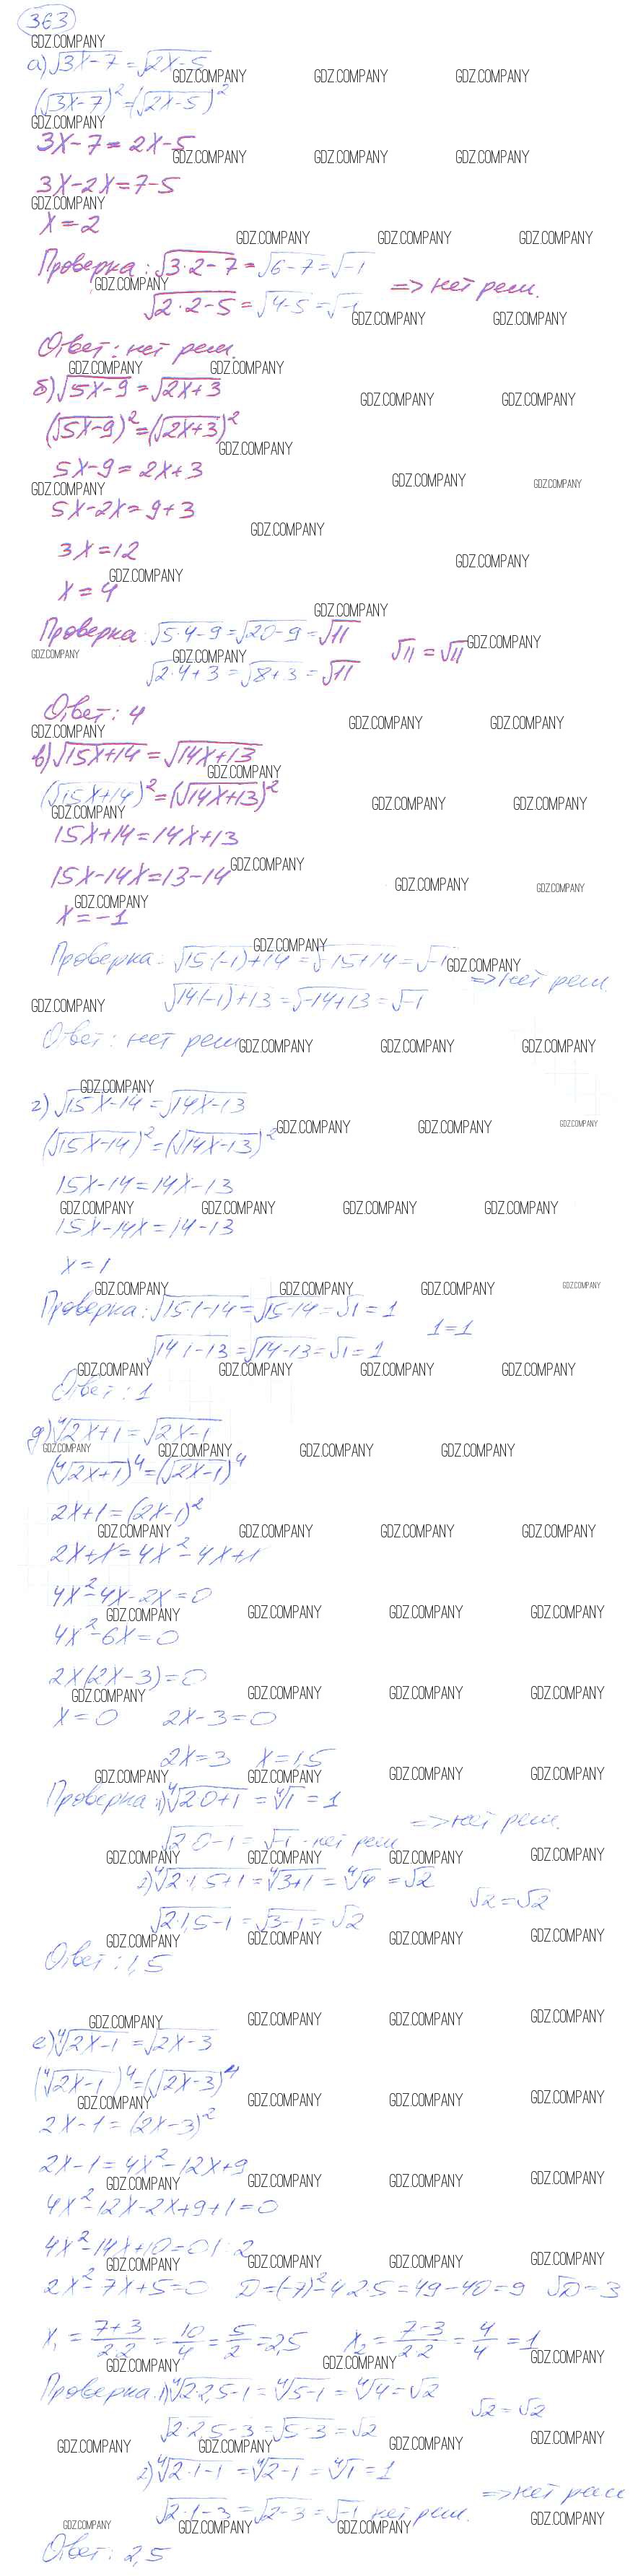 363
GDZ.COMPANY
а) √3x-7 = √2x-5
GDZ.COMPANY GDZ.COMPANY GDZ.COMPANY
(√3x-7)² = (√2x-5)²
GDZ.COMPANY
3x-7 = 2x-5
GDZ.COMPANY GDZ.COMPANY GDZ.COMPANY
3x-2x=7-5
GDZ.COMPANY
x=2
GDZ.COMPANY GDZ.COMPANY GDZ.COMPANY
Проверка: √3·2-7 = √6-7 = √-1
GDZ.COMPANY => нет реш.
√2·2-5 = √4-5 = √-1
GDZ.COMPANY GDZ.COMPANY
Ответ: нет реш.
GDZ.COMPANY GDZ.COMPANY
б) √5x-9 = √2x+3
GDZ.COMPANY GDZ.COMPANY
(√5x-9)² = (√2x+3)²
GDZ.COMPANY
5x-9 = 2x+3
GDZ.COMPANY GDZ.COMPANY GDZ.COMPANY
5x-2x=9+3
GDZ.COMPANY
3x=12
GDZ.COMPANY
GDZ.COMPANY
x=4
GDZ.COMPANY
Проверка: √5·4-9 = √20-9 = √11
√11 = √11 GDZ.COMPANY
GDZ.COMPANY GDZ.COMPANY
√2·4+3 = √8+3 = √11
Ответ: 4
GDZ.COMPANY GDZ.COMPANY GDZ.COMPANY
в) √15x+14 = √14x+13
GDZ.COMPANY
(√15x+14)² = (√14x+13)²
GDZ.COMPANY GDZ.COMPANY GDZ.COMPANY
15x+14=14x+13
GDZ.COMPANY
15x-14x=13-14
GDZ.COMPANY GDZ.COMPANY
GDZ.COMPANY
x=-1
GDZ.COMPANY
Проверка: √15(-1)+14 = √-15+14 = √-1
GDZ.COMPANY => нет реш.
√14(-1)+13 = √-14+13 = √-1
GDZ.COMPANY
Ответ: нет реш
GDZ.COMPANY GDZ.COMPANY GDZ.COMPANY
GDZ.COMPANY
г) √15x-14 = √14x-13
GDZ.COMPANY GDZ.COMPANY GDZ.COMPANY
(√15x-14)² = (√14x-13)²
15x-14=14x-13
GDZ.COMPANY GDZ.COMPANY GDZ.COMPANY GDZ.COMPANY
15x-14x=14-13
x=1
GDZ.COMPANY GDZ.COMPANY GDZ.COMPANY GDZ.COMPANY
Проверка: √15·1-14 = √15-14 = √1 = 1
1=1
√14·1-13 = √14-13 = √1 = 1
GDZ.COMPANY GDZ.COMPANY GDZ.COMPANY GDZ.COMPANY
Ответ: 1
д) ⁴√2x+1 = √2x-1
GDZ.COMPANY GDZ.COMPANY GDZ.COMPANY GDZ.COMPANY
(⁴√2x+1)⁴ = (√2x-1)⁴
2x+1=(2x-1)²
GDZ.COMPANY GDZ.COMPANY GDZ.COMPANY GDZ.COMPANY
2x+1=4x²-4x+1
4x²-4x-2x=0
GDZ.COMPANY GDZ.COMPANY GDZ.COMPANY GDZ.COMPANY
4x²-6x=0
2x(2x-3)=0
GDZ.COMPANY GDZ.COMPANY GDZ.COMPANY GDZ.COMPANY
x=0 2x-3=0
2x=3 x=1,5
GDZ.COMPANY GDZ.COMPANY GDZ.COMPANY GDZ.COMPANY
Проверка: 1) ⁴√2·0+1 = ⁴√1 = 1
=> нет реш.
√2·0-1 = √-1 - нет реш
GDZ.COMPANY GDZ.COMPANY GDZ.COMPANY GDZ.COMPANY
2) ⁴√2·1,5+1 = ⁴√3+1 = ⁴√4 = √2
√2 = √2
√2·1,5-1 = √3-1 = √2
GDZ.COMPANY GDZ.COMPANY GDZ.COMPANY GDZ.COMPANY
Ответ: 1,5
GDZ.COMPANY GDZ.COMPANY GDZ.COMPANY GDZ.COMPANY
е) ⁴√2x-1 = √2x-3
(⁴√2x-1)⁴ = (√2x-3)⁴
GDZ.COMPANY GDZ.COMPANY GDZ.COMPANY GDZ.COMPANY
2x-1=(2x-3)²
2x-1=4x²-12x+9
GDZ.COMPANY GDZ.COMPANY GDZ.COMPANY GDZ.COMPANY
4x²-12x-2x+9+1=0
4x²-14x+10=0 |:2
GDZ.COMPANY GDZ.COMPANY GDZ.COMPANY GDZ.COMPANY
2x²-7x+5=0 D=(-7)²-4·2·5=49-40=9 √D=3
x₁ = 7+3/2·2 = 10/4 = 5/2 = 2,5 x₂ = 7-3/2·2 = 4/4 = 1
GDZ.COMPANY GDZ.COMPANY GDZ.COMPANY
Проверка: 1) ⁴√2·2,5-1 = ⁴√5-1 = ⁴√4 = √2
√2 = √2
√2·2,5-3 = √5-3 = √2
GDZ.COMPANY GDZ.COMPANY GDZ.COMPANY GDZ.COMPANY
2) ⁴√2·1-1 = ⁴√2-1 = ⁴√1 = 1
=> нет реш
√2·1-3 = √2-3 = √-1 нет реш.
GDZ.COMPANY GDZ.COMPANY GDZ.COMPANY GDZ.COMPANY
Ответ: 2,5